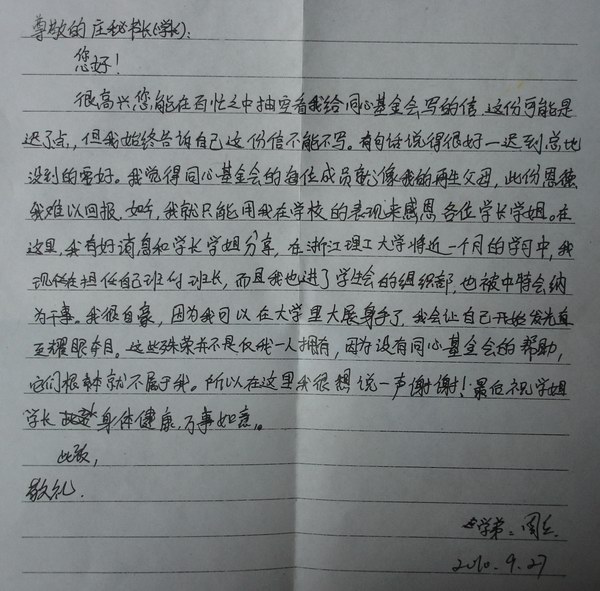 尊敬的庄秘书长(学长)：
您好！
很高兴您能在百忙之中抽空看我给同心基金会写的信，这份可能是
迟了点，但我始终告诉自己这份信不能不写。有句话说得很好—迟到总比
没到的要好。我觉得同心基金会的每位成员就像我的再生父母，此份恩德
我难以回报，如今，我就只能用我在学校的表现来感恩各位学长学姐。在
这里，我有好消息和学长学姐分享，在浙江理工大学将近一个月的学习中，我
现在担任自己班付班长，而且我也进了学生会的组织部，也被中特会纳
为干事。我很自豪，因为我可以在大学里大展身手了，我会让自己开始发光直
至耀眼夺目。这些殊荣并不是仅我一人拥有，因为没有同心基金会的帮助，
它们根本就不属于我。所以在这里我很想说一声谢谢！最后祝学姐
学长 身体健康，万事如意。
此致，
敬礼.
学弟：周
2010.9.27